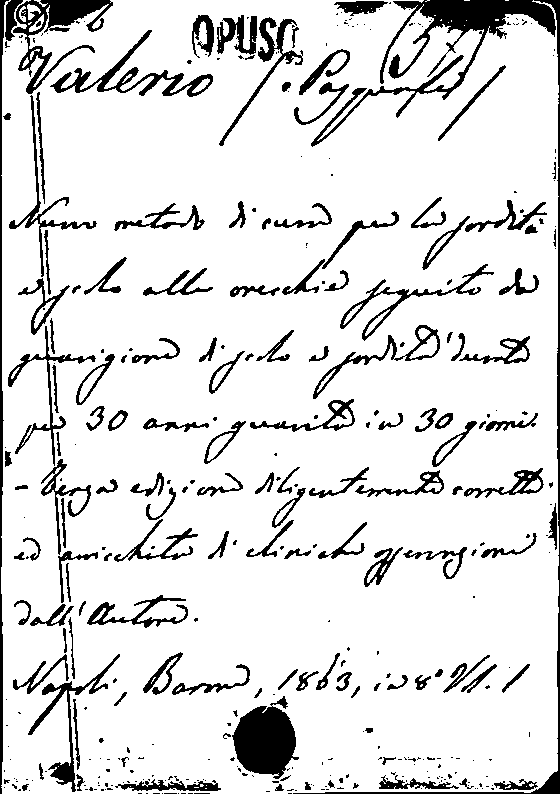 OPUSC
Valerio (Pasquale)
Nuovo metodo di cura per la sordità
e gelo alle orecchie seguito da
guarigione di gelo e sordità durata
per 30 anni guarita in 30 giorni.
- Terza edizione diligentemente corretta
ed arricchita di cliniche osservazioni
dall'Autore.
Napoli, Barone, 1863, in 8° Vl. 1